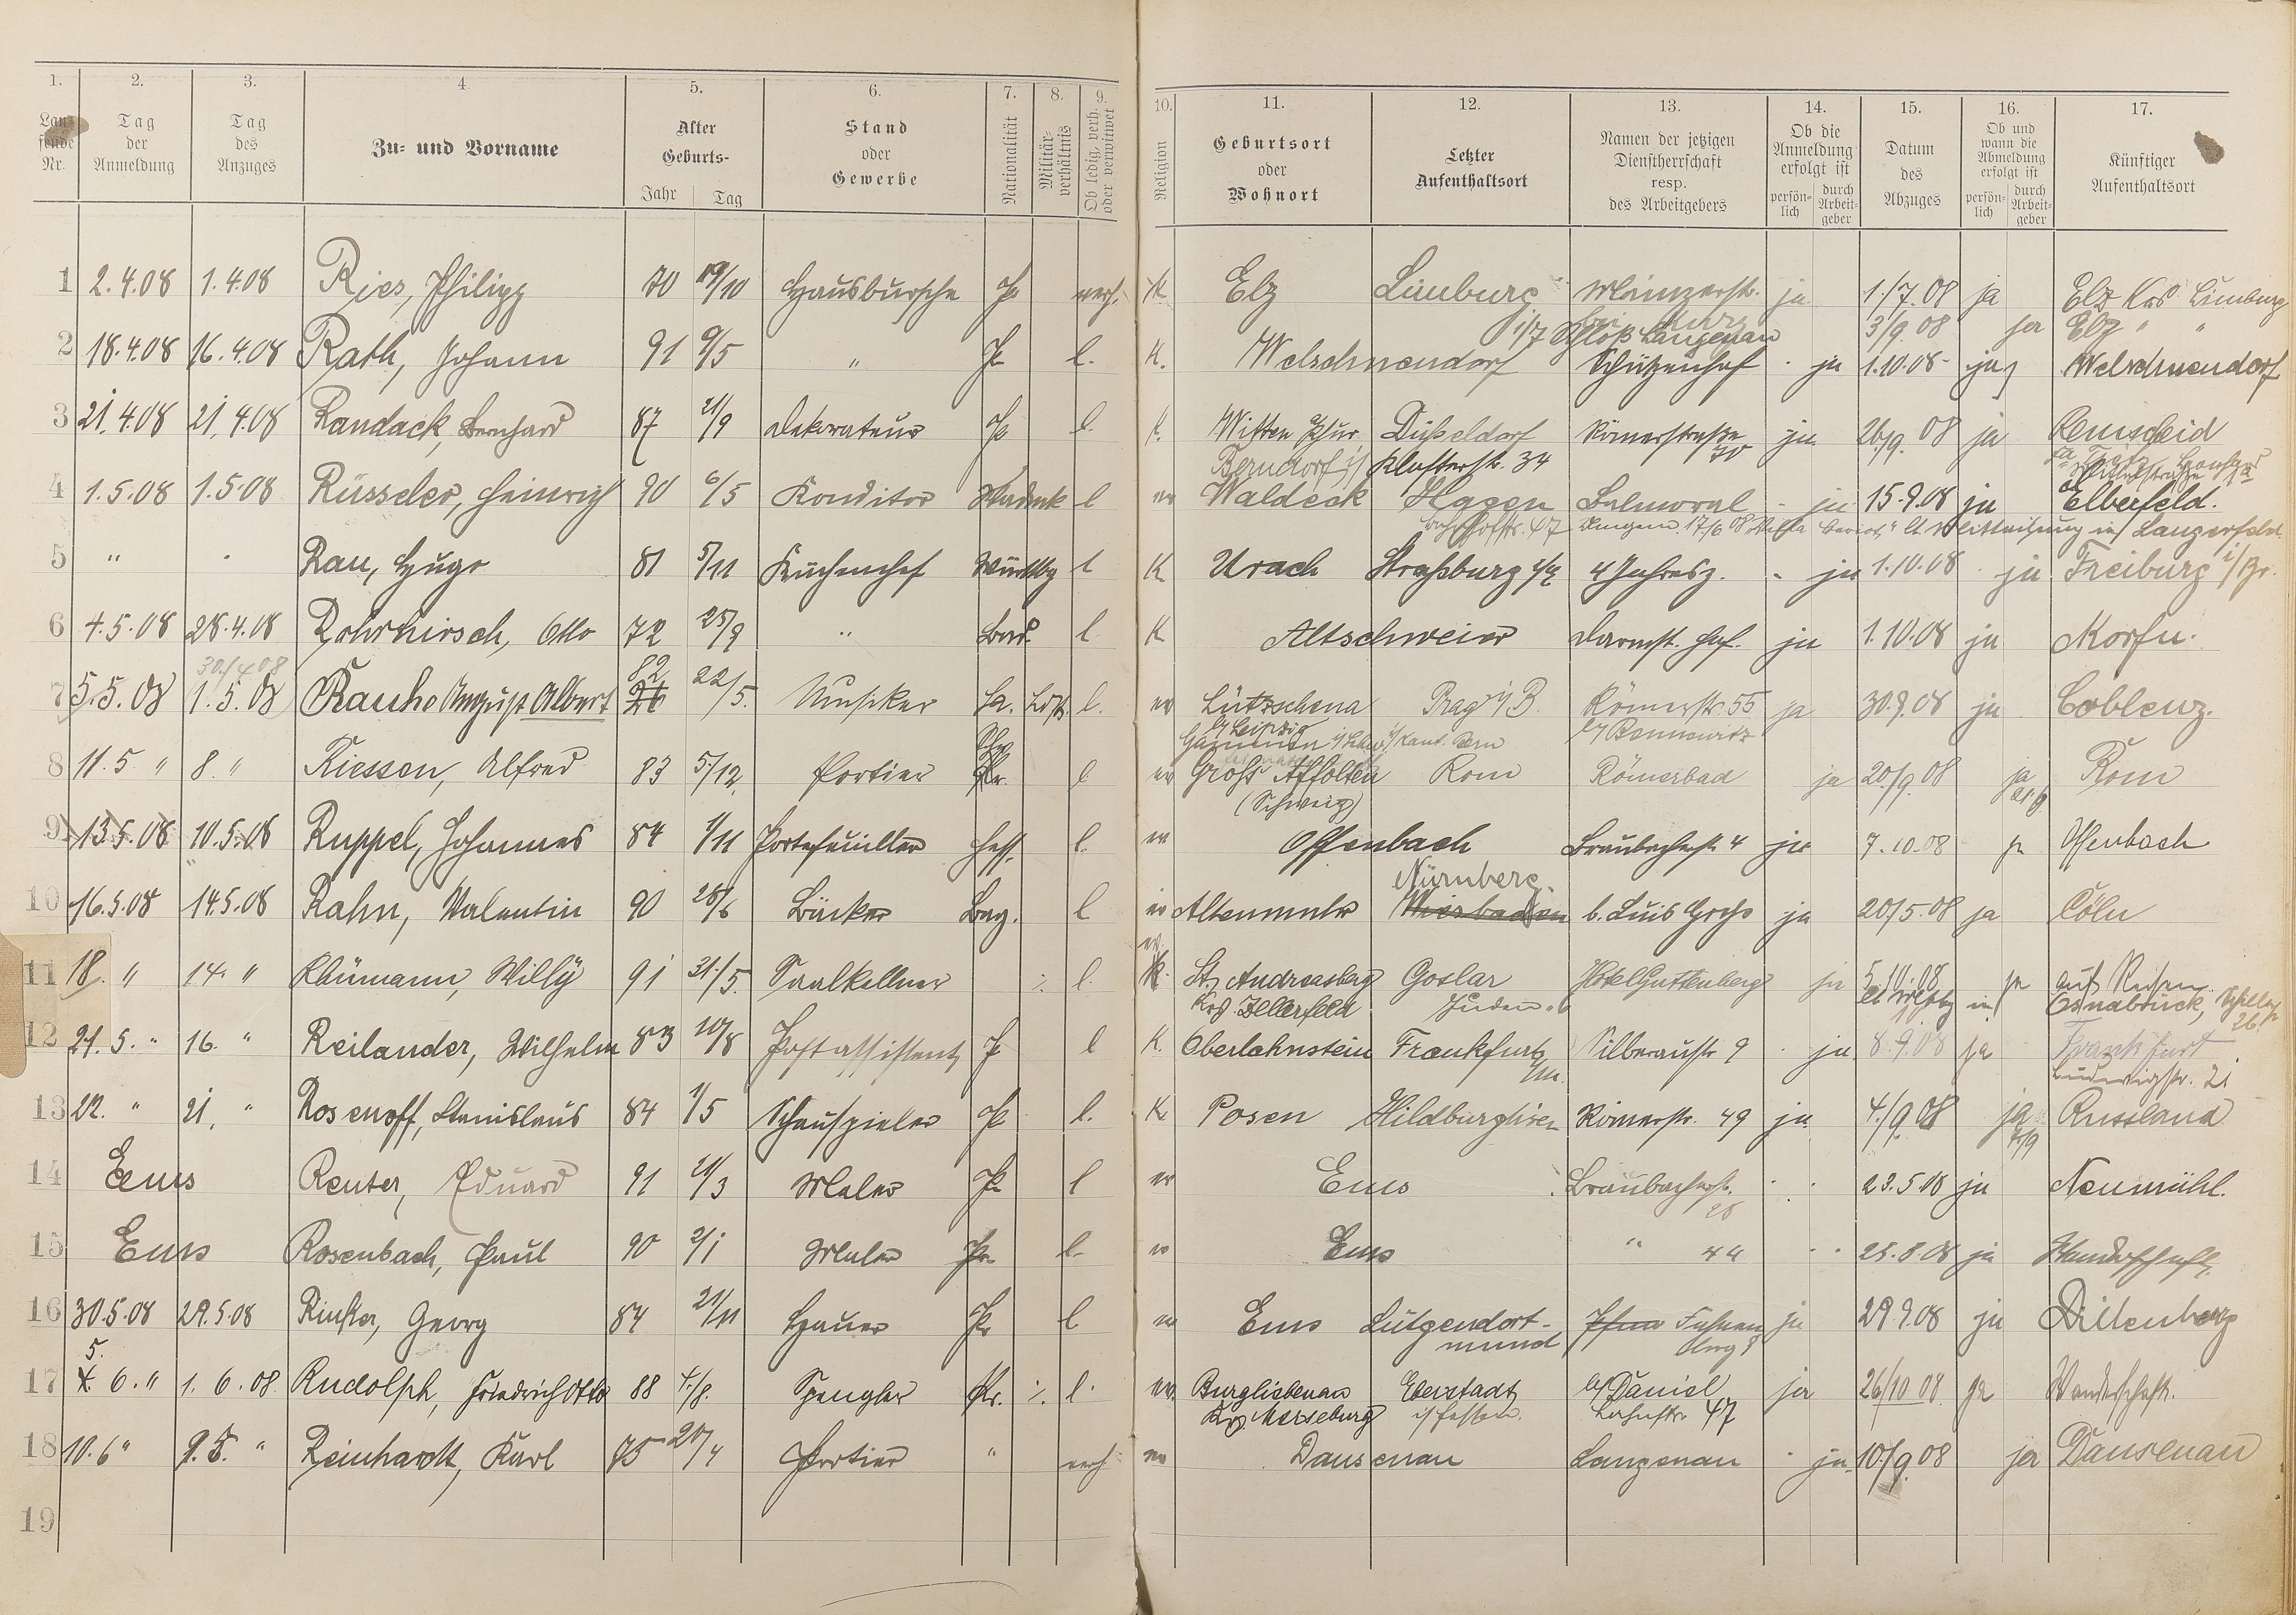 1. 2. 3. 4. 5. 6. 7. 8. 9. 10. 11. 12. 13. 14. 15. 16. 17.
Laufende Nr. Tag der Anmeldung Tag des Anzuges Zu- und Vorname Alter Geburts- Jahr Tag Stand oder Gewerbe Nationalität Militärverhältnis Ob ledig, verh. oder verwitwet Religion Geburtsort oder Wohnort Letzter Aufenthaltsort Namen der jetzigen Dienstherrschaft resp. des Arbeitgebers Ob die Anmeldung erfolgt ist persönlich durch Arbeitgeber Datum des Abzuges Ob und wann die Abmeldung erfolgt ist persönlich durch Arbeitgeber Künftiger Aufenthaltsort
1 2.4.08 1.4.08 Ries, Philipp 70 19/10 Hausbursche Pr verh. K Elz Limburg Mainzerstr. ja 1/7.08 ja Elz Krs Limburg
1/7 Schloß Langenau 3/9.08 ja Elz " "
2 18.4.08 16.4.08 Rath, Johann 91 9/5 " Pr l. K. Welschneudorf Schützenhof ja 1.10.08 ja Welschneudorf
3 21.4.08 21.4.08 Randack, Bernhard 87 21/9 Dekorateur Pr l. K. Witten Ruhr Düsseldorf Römerstraße 70 ja 26/9.08 ja Remscheid
Berndorf i/ Klosterstr. 34
4 1.5.08 1.5.08 Rüsseler, Heinrich 90 6/5 Konditor Waldeck l ev Waldeck Hagen Balmoral - ja 15.9.08 ja Elberfeld.
Bahnhofstr. 47 in Langerfeld
5 " " Rau, Hugo 81 5/11 Küchenchef Württbg l K Urach Straßburg i/E 4 Jahresz. - ja 1.10.08 ja Freiburg i/Br.
6 4.5.08 28.4.08 Rohrhirsch, Otto 72 25/9 " Bad. l K Altschweier Darmst. Hof. ja 1.10.08 ja Korfu.
30/4 08 82
7 5.5.08 1.5.08 Rauhe August Albert 26 22/5. Musiker Sa. Ldst. l. ev Lützschena Prag i/B. Römerstr. 55 ja 30.9.08 ja Coblenz.
b/Leipzig b/ Bennewitz
8 11.5 " 8. " Riessen, Alfred 83 5/12 Portier Pr. l ev Groß Affoltern Rom Römerbad ja 20/9 08 ja Rom
(Schweiz)
9 13.5.08 10.5.08 Ruppel, Johannes 84 1/11 Portefeuiller Hess. l. ev Offenbach Braubacherstr. 4 ja 7.10.08 ja Offenbach
Nürnberg.
10 16.5.08 14.5.08 Rahn, Valentin 90 28/6 Bäcker Bay. l ev Altenmuhr Wiesbaden b. Luis Groß ja 20/5.08 ja Cöln
ev.
11 18. " 14. " Rhümann, Willy 91 31./5. Saalkellner ./. l. K. St. Andreasberg Goslar Hotel Guttenberg ja 5.10.08 ja auf Reisen
Krs. Zellerfeld Osnabrück,
12 21.5. " 16. " Reilander, Wilhelm 83 10/8 Postassistent Pr l K. Oberlahnstein Frankfurt a/M. Silberaustr. 9 ja 8.9.08 ja Frankfurt
Ludwigstr. 21
13 22. " 21. " Rosenoff, Stanislaus 84 1/5 Schauspieler Pr l. K Posen Hildburghsn Römerstr. 49 ja 4/9.08 ja Russland
14 Ems Reuter, Eduard 91 21/3 Maler Pr l ev Ems Braubacherstr. 28 23.5.08 ja Neumühl.
15 Ems Rosenbach, Paul 90 2/1 Maler Pr l. ev Ems " 44 25.8.08 ja Wanderschaft.
16 30.5.08 29.5.08 Rinker, Georg 84 21/11 Hauer Pr l ev Ems Lütgendort- ja 29.9.08 ja Dillenberg
mund
5.
17 4.6. " 1.6.08 Rudolph, Friedrich Otto 88 4./8. Spengler Pr. ./. l. ev. Burgliebenau Eberstadt b/ Daniel ja 26/10 08 ja Wanderschaft.
Krs. Merseburg i/Hessen. Lahnstr. 47
18 10.6 " 9.6. " Reinhardt, Karl 75 20/4 Portier " verh ev Dausenau Langenau - ja 10/9.08 ja Dausenau
19